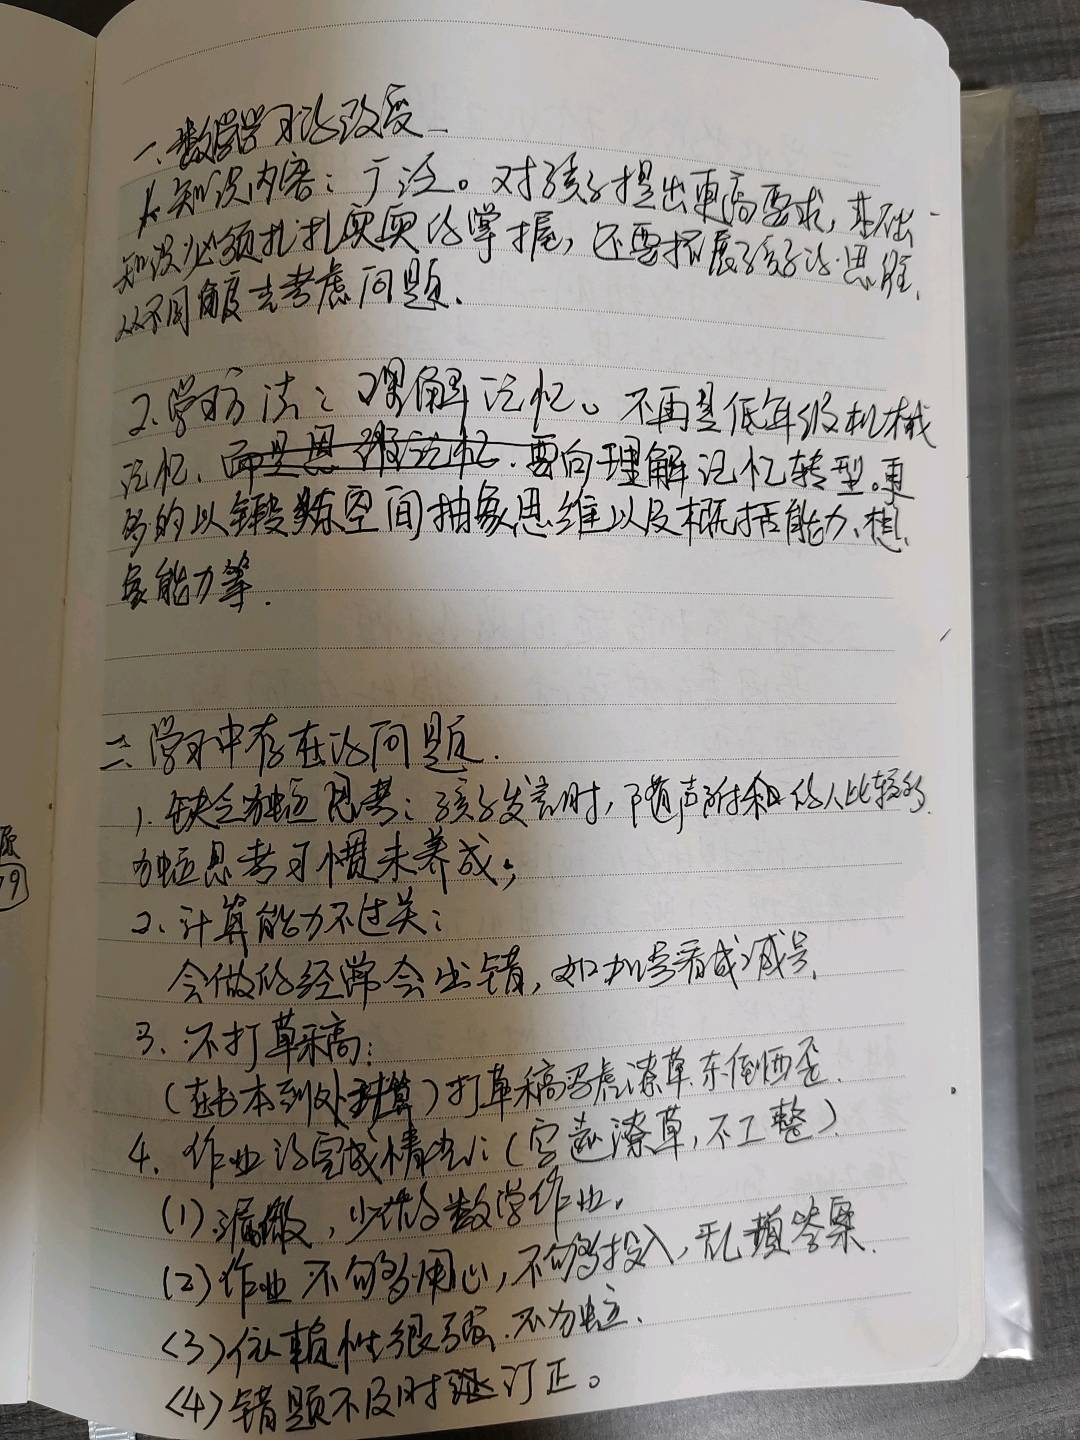 一、数学学习的改变
1、知识内容：广泛。对孩子提出更高要求，基础
知识必须扎扎实实的掌握，还要拓展孩子的思维，
从不同角度去考虑问题.
2、学习方法：理解记忆。不再是低年级机械
记忆，而是思维记忆.要向理解记忆转型。更
多的以锻炼空间抽象思维以及概括能力、想
象能力等.
二、学习中存在的问题.
1、缺乏独立思考：孩子发言时，随声附和的人比较多
独立思考习惯未养成；
2、计算能力不过关：
会做的经常会出错，如加号看成减号.
3、不打草稿：
(在书本到处计算)打草稿马虎潦草.东倒西歪.
4、作业的完成情况：(字迹潦草，不工整).
(1).漏做，少做的数学作业.
(2)作业不够用心，不够投入，乱填答案.
(3)依赖性很强.不独立.
(4)错题不及时订正。
原
79